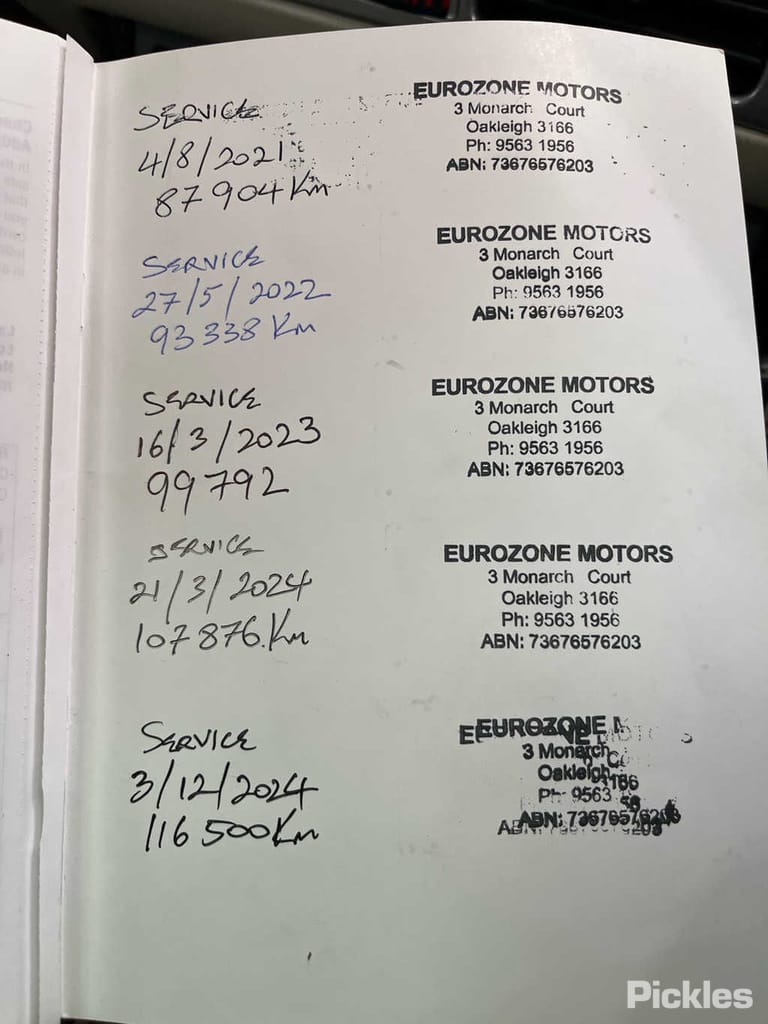 SERVICE
4/8/2021
87904 Km
EUROZONE MOTORS
3 Monarch Court
Oakleigh 3166
Ph: 9563 1956
ABN: 73676576203
SERVICE
27/5/2022
93338 Km
EUROZONE MOTORS
3 Monarch Court
Oakleigh 3166
Ph: 9563 1956
ABN: 73676576203
SERVICE
16/3/2023
99792
EUROZONE MOTORS
3 Monarch Court
Oakleigh 3166
Ph: 9563 1956
ABN: 73676576203
SERVICE
21/3/2024
107876.Km
EUROZONE MOTORS
3 Monarch Court
Oakleigh 3166
Ph: 9563 1956
ABN: 73676576203
SERVICE
3/12/2024
116500 Km
EUROZONE MOTORS
3 Monarch
Oakleigh 3166
Ph: 9563
ABN: 73676576203
Pickles